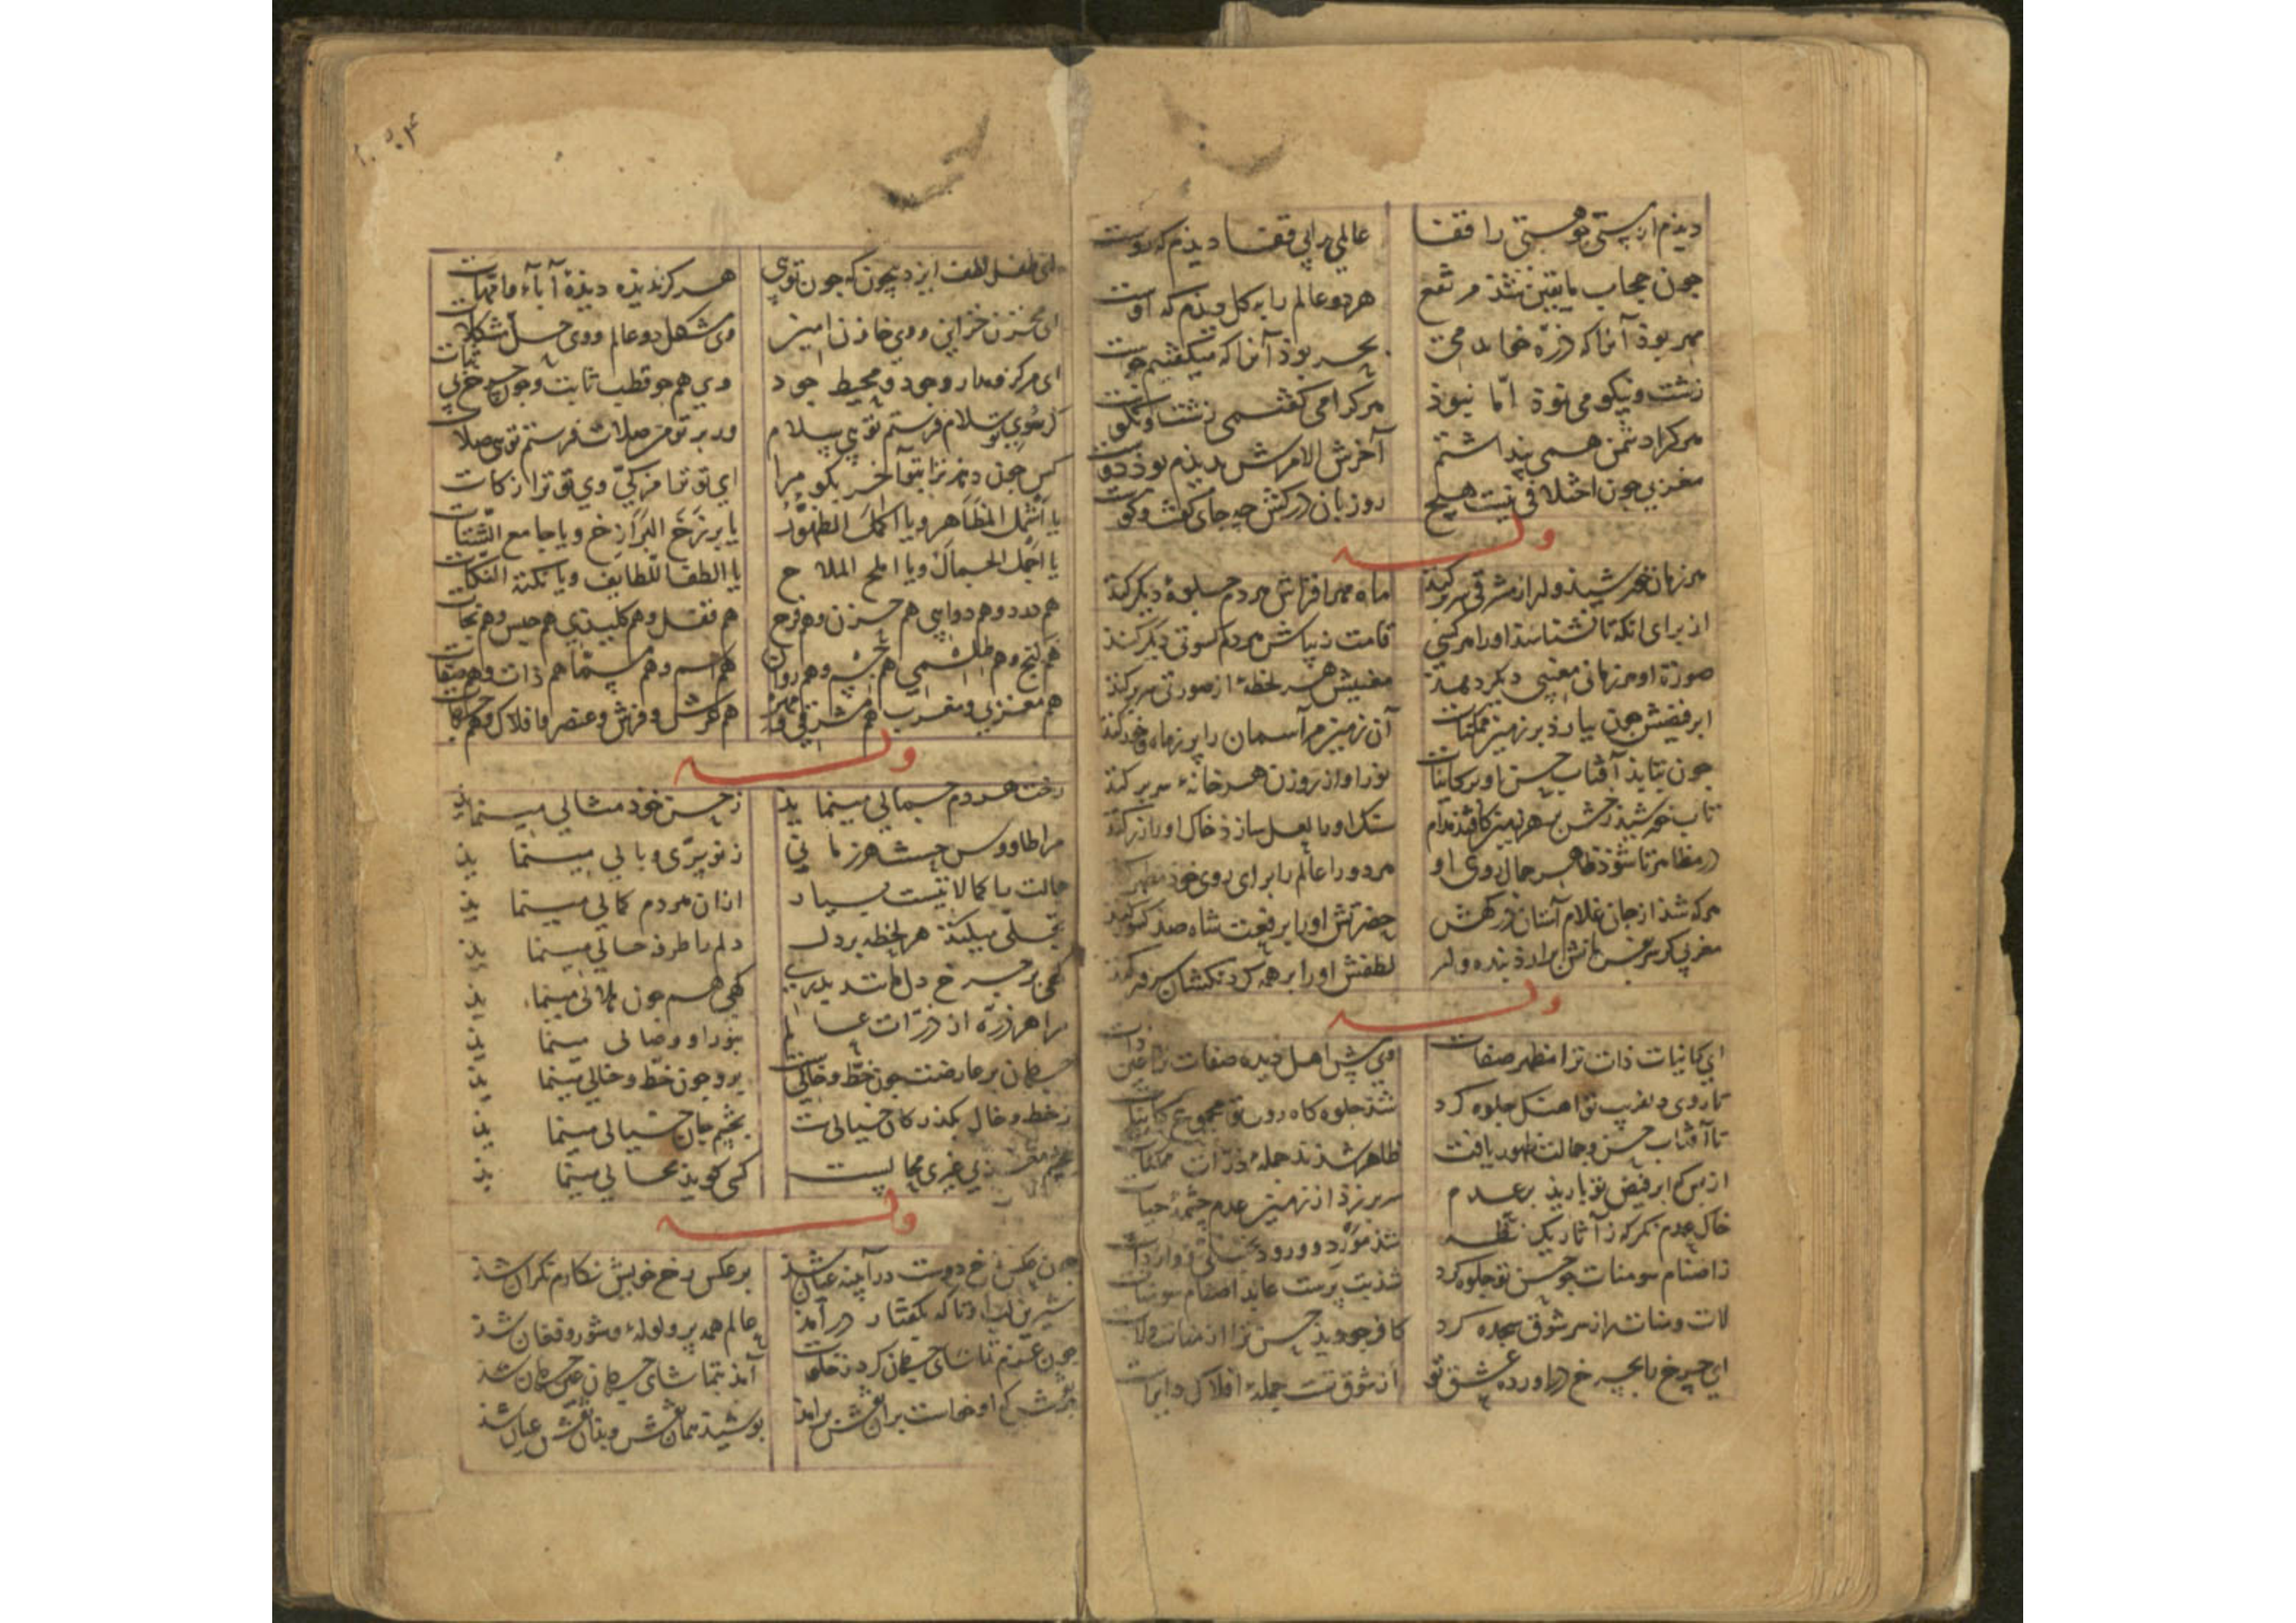 دیذم از پستی هستی را قفا عالمی را بی قفا دیذم که روست
جون حجاب مایقین شذ مرتفع هر دو عالم را به کل دیذم که اوست
مهر بوذ آنرا که ذره خواندمی بحر بوذ آنرا که میکفتیم جوست
زشت و نیکو می نموذ اما نبوذ هرکرا می کفتمی زشت و نکوست
هرکرا دشمن همی پنداشتم آخر الامرش بدیذم بوذ دوست
مغربی جون اختلافی نیست هیچ رو زبان درکش جه جای کفت و کوست
وله
هر زمان خورشیذ او از مشرقی سر برکند ماه مهر افزاش هر دم جلوهٔ دیکر کند
از برای انکه تا نشناسذ او را هر کسی قامت زیباش هر دم کسوتی دیکر کند
صورة او هر زمانی معنیی دیکر دهذ معنیش هر لحظهٔ از صورتی سر برکند
ابر فیضش جون ببارذ بر زمین ممکنات آن زمین مر آسمان را پر ز ماه و خور کند
جون بتابذ آفتاب حسن او بر کاینات نور او از روزن هر خانهٔ سر برکند
تاب خورشیذ رخش بر هر زمین کافتذ مدام سنک او را لعل سازذ خاک او را زر کند
در مظاهر تا شوذ ظاهر جمال روی او هر دو را عالم را برای روی خوذ مظهر کند
هرکه شذ از جان غلام آستان درکهش حضرتش او را برفعت شاه صذ کشور کند
مغربی کر سر بفرمانش برارذ بنده وار لطفش او را بر همه کردنکشان سرور کند
وله
ای کاینات ذات ترا مظهر صفات وی پیش اهل دیده صفات تو عین ذات
تا روی دلفریب تو اهنک جلوه کرد شذ جلوه کاه روی تو مجموع کاینات
تا آفتاب حسن و جمالت ظهور یافت ظاهر شذند جملهٔ ذرات ممکنات
از بس که ابر فیض تو باریذ بر عدم سر بر زذ از زمین عدم چشمهٔ حیات
خاک عدم نکر که ز آثار یک نظر شذ مورد ورود تجلی و واردات
ز اصنام سومنات جو حسن تو جلوه کرد شذ بت پرست عابد اصنام سومنات
لات و منات را ز سر شوق سجده کرد کافر جو دیذ حسن ترا از منات و لات
ای چرخ را بچرخ دراورده عشق تو از شوق تست جملهٔ افلاک دایرات
ای طفل لطف ایزد بیچون که جون تویی هرکز ندیذه دیذهٔ آبا و امهات
ای مخزن خزاین و وی خازن امین وی مشکل دو عالم و وی حل مشکلات
ای مرکز مدار وجود و محیط جود وی هم جو قطب ثابت و جون چرخ بی ثبات
کر سوی تو سلام فرستم تویی سلام ور بر تو من صلات فرستم تویی صلات
کس جون دهذ ترا بتو آخر بکو مرا ای تو ترا مزکی وی تو ترا زکات
یا اشمل المظاهر و یا اکمل الظهور یا برزخ البرازخ و یا جامع الشتات
یا اجمل الجمال و یا املح الملاح یا الطف اللطایف و یا نکتة النکات
هم درد و هم دوایی هم حزن و هم فرح هم قفل و هم کلیدی هم حبس و هم نجات
هم کنج و هم طلسمی هم جسم و هم روان هم اسم و هم مسما هم ذات و هم صفات
هم مغربی و مغرب هم مشرقی و مهر هم عرش و فرش و عنصر و افلاک و هم جهات
وله
رخت هر دم جمالی مینماید ز حسن خوذ مثالی مینماید
مرا طاووس حسنت هر زمانی ز نو پری و بالی مینماید
جمالت با کمالاتیست بسیار ازان هر دم کمالی مینماید
تجلی میکند هر لحظه بر دل دلم را طرفه حالی مینماید
کهی بر چرخ دل مانند بدری کهی هم جون هلالی مینماید
مرا هر ذره از ذرات عالم بنور او وصالی مینماید
جهان بر عارضت جون خط و خالیست برو جون خط و خالی مینماید
ز خط و خال بکذر کان خیالیست بچشم جان خیالی مینماید
کسی کوید محالی مینماید
وله
جون عکس رخ دوست در آیینه عیان شذ بر عکس رخ خویش نکارم نکران شذ
شیرین لب او تا که بکفتار در آمذ عالم همه پر ولولهٔ و شور و فغان شذ
جون عزم تماشای جهان کرد ز خلوت آمذ بتماشای جهان عین جهان شذ
هر نقش که او خواست بران نقش برامذ بوشیذ همان نقش و بذان نقش عیان شذ